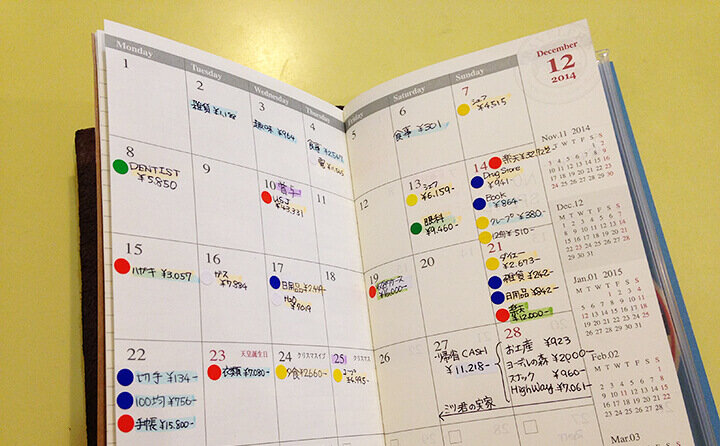 Monday
Tuesday
Wednesday
Thursday
Friday
Saturday
Sunday
December
12
2014
1
2
雑貨 ¥1,188
3
趣味 ¥964
4
食事
5
6
食事 ¥301
7
シェフ
¥4515
8
DENTIST
¥5,850
9
10
賞与
USJ
¥43,331
11
12
13
シェフ
¥6,159-
眼科
¥9,460-
14
楽天
Drug Store
¥941-
Book
¥864-
クレープ ¥380
¥510-
15
ハガキ ¥3,057
16
ガス
¥7,834
17
日用品
18
19
20
21
ダイエー
¥2,673-
雑貨 ¥242-
日用品 ¥842-
楽天
¥12,000-
22
切手 ¥134-
100均 ¥756-
手帳 ¥15,800-
23
天皇誕生日
衣類 ¥7,080-
24
クリスマスイブ
夕食 ¥2,660-
25
クリスマス
¥6,995-
26
27
帰省 CASH
¥11,218-
28
お土産 ¥923
ヨーデルの森 ¥2,000
スナック ¥960-
HighWay ¥7,061-
の実家
Nov.11 2014
M T W T F S S
Dec.12
M T W T F S S
Jan.01 2015
M T W T F S S
Feb.02
M T W T F S S
Mar.03